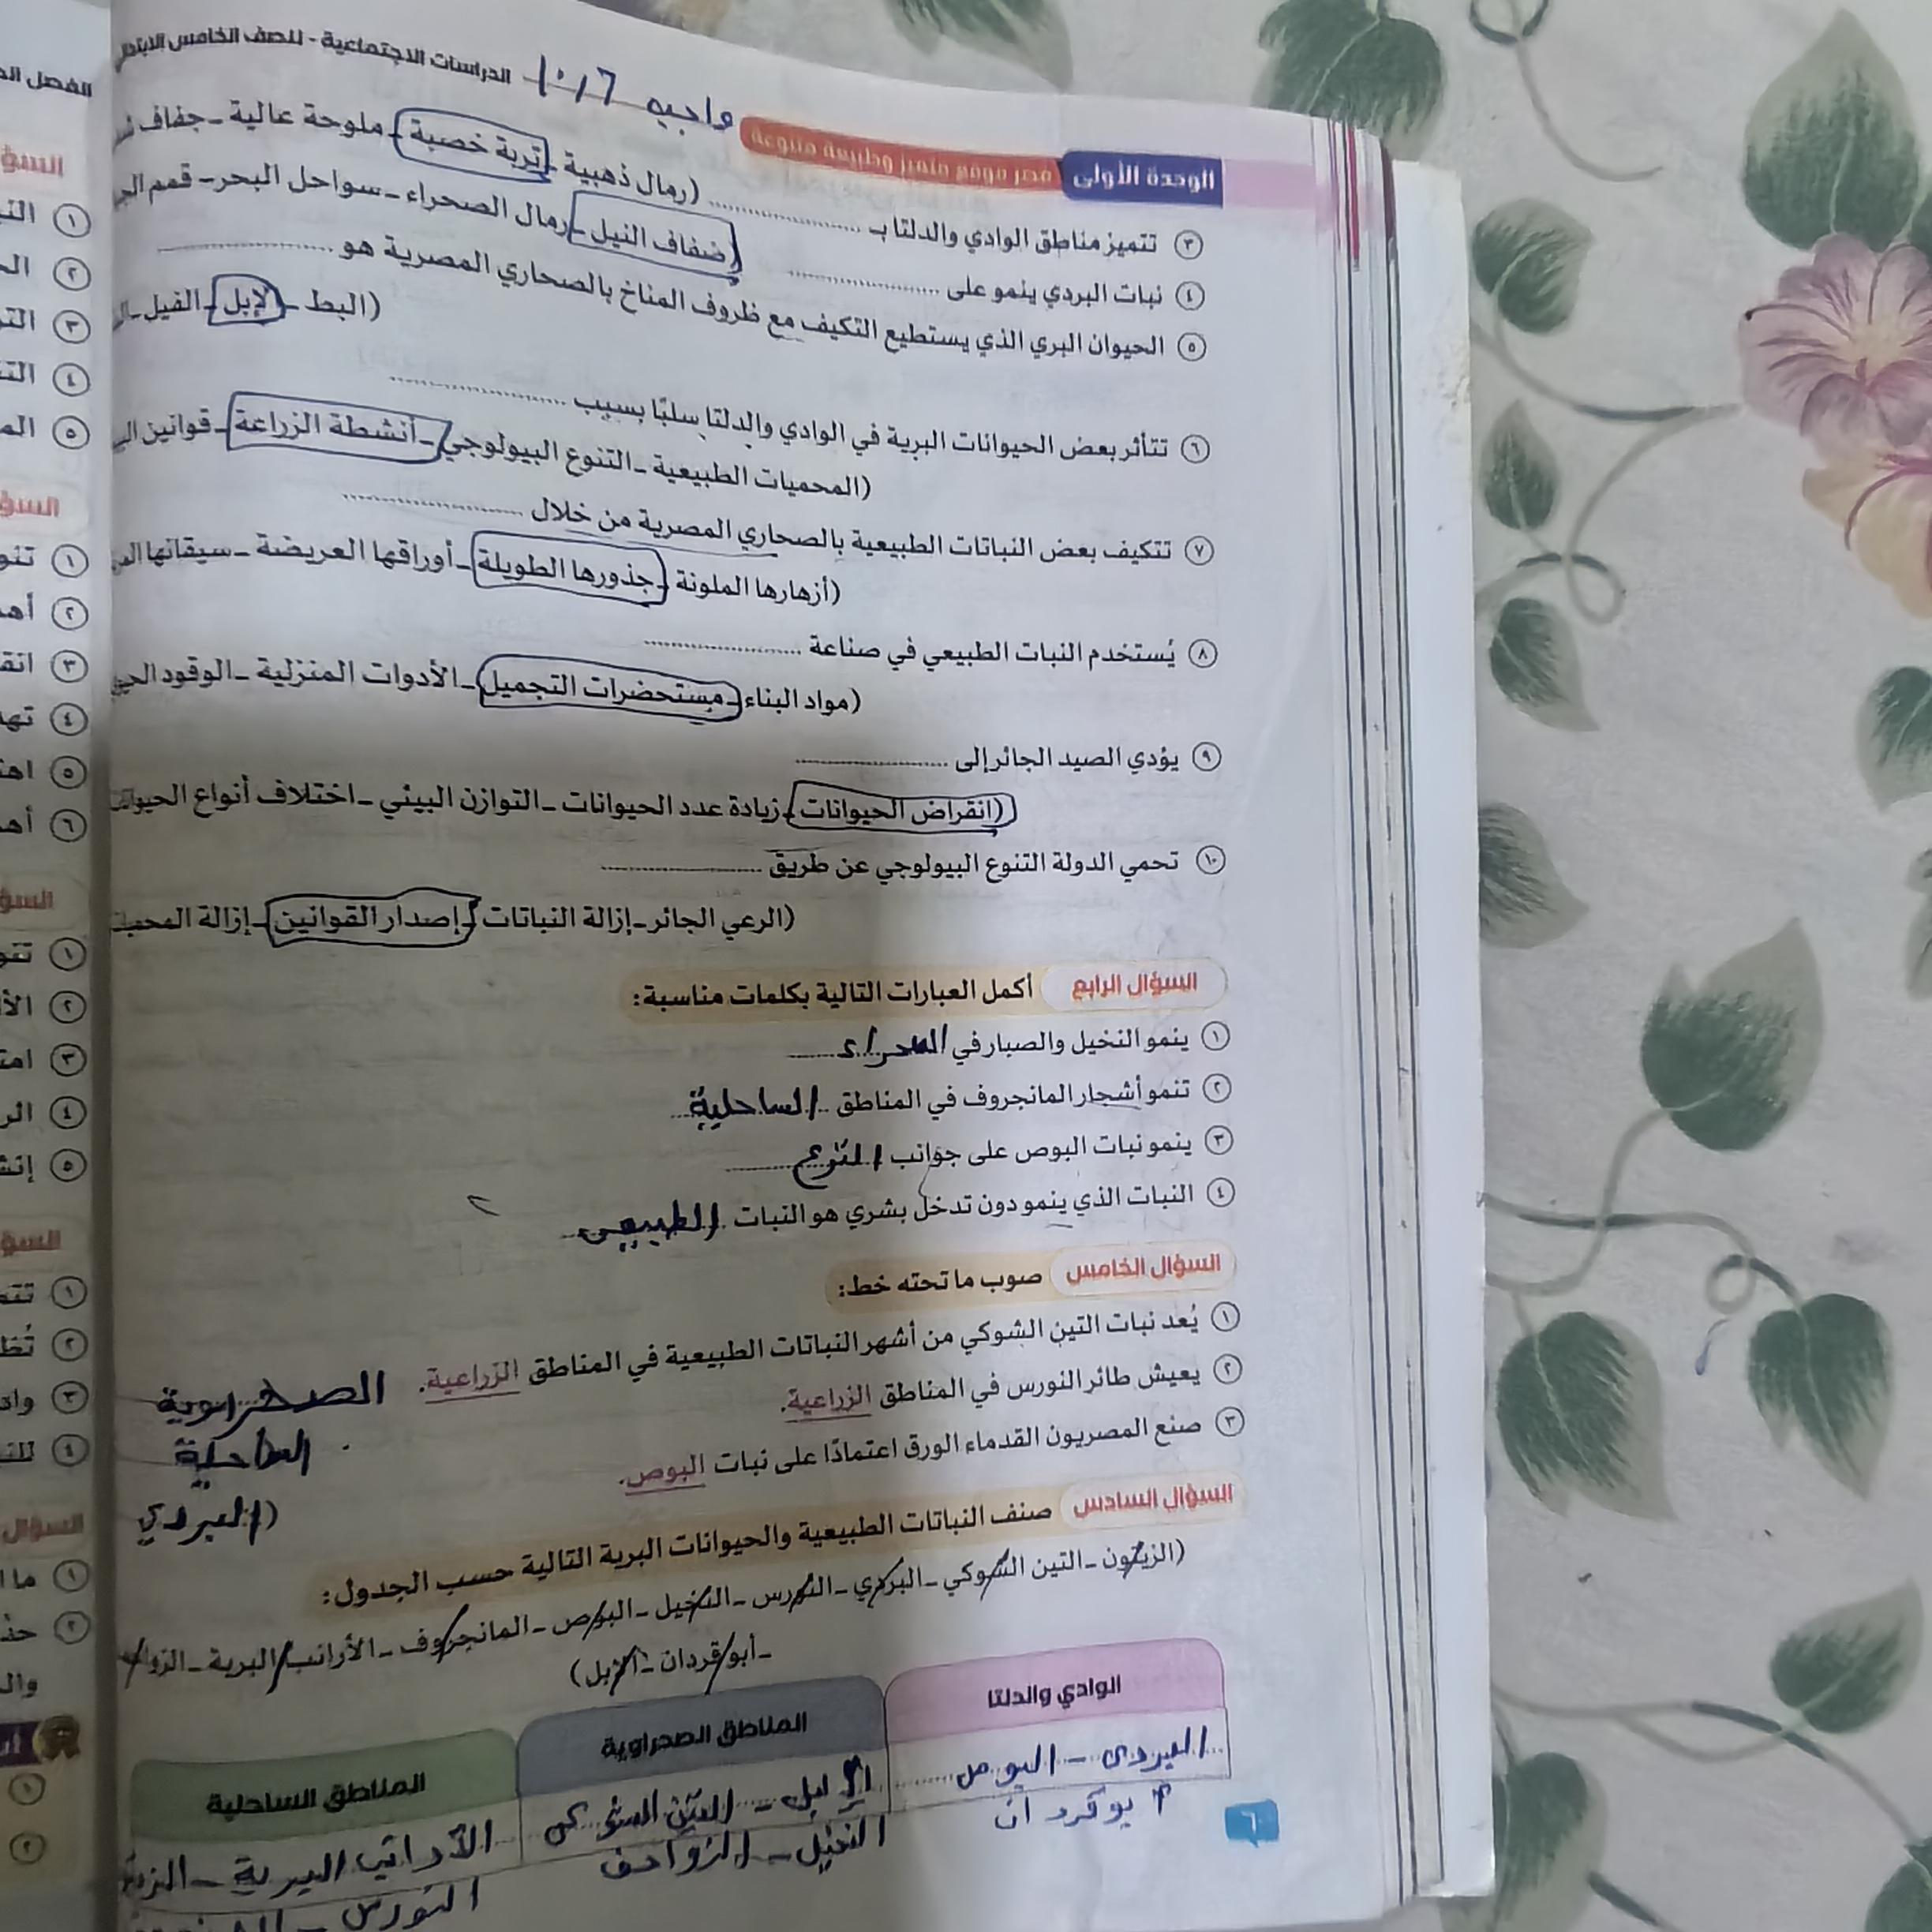 الدراسات الاجتماعية - للصف الخامس الابتدائي
واجبه
الوحدة الأولى مصر موقع متميز وطبيعة متنوعة
٣ تتميز مناطق الوادي والدلتا بـ .................... (رمال ذهبية - تربة خصبة - ملوحة عالية - جفاف
٤ نبات البردي ينمو على .................... (ضفاف النيل - رمال الصحراء - سواحل البحر - قمم
٥ الحيوان البري الذي يستطيع التكيف مع ظروف المناخ بالصحاري المصرية هو ....................
(البط - الإبل - الفيل -
٦ تتأثر بعض الحيوانات البرية في الوادي والدلتا سلبًا بسبب ....................
(المحميات الطبيعية - التنوع البيولوجي - أنشطة الزراعة - قوانين
٧ تتكيف بعض النباتات الطبيعية بالصحاري المصرية من خلال ....................
(أزهارها الملونة - جذورها الطويلة - أوراقها العريضة - سيقانها
٨ يُستخدم النبات الطبيعي في صناعة ....................
(مواد البناء - مستحضرات التجميل - الأدوات المنزلية - الوقود
٩ يؤدي الصيد الجائر إلى ....................
(انقراض الحيوانات - زيادة عدد الحيوانات - التوازن البيئي - اختلاف أنواع
١٠ تحمي الدولة التنوع البيولوجي عن طريق ....................
(الرعي الجائر - إزالة النباتات - إصدار القوانين - إزالة
السؤال الرابع أكمل العبارات التالية بكلمات مناسبة:
١ ينمو النخيل والصبار في الصحراء
٢ تنمو أشجار المانجروف في المناطق الساحلية
٣ ينمو نبات البوص على جوانب الترع
٤ النبات الذي ينمو دون تدخل بشري هو النبات الطبيعى
السؤال الخامس صوب ما تحته خط:
١ يُعد نبات التين الشوكي من أشهر النباتات الطبيعية في المناطق الزراعية. الصحراوية
٢ يعيش طائر النورس في المناطق الزراعية. الساحلية
٣ صنع المصريون القدماء الورق اعتمادًا على نبات البوص. البردي
السؤال السادس صنف النباتات الطبيعية والحيوانات البرية التالية حسب الجدول:
(الزيتون - التين الشوكي - البردي - النورس - النخيل - البوص - المانجروف - الأرانب البرية -
- أبو قردان - الإبل)
الوادي والدلتا المناطق الصحراوية المناطق الساحلية
البردى - البوص الإبل - التين الشوكى الأرانب البرية -
أبو قردان النخيل - الزواحف النورس -
٦